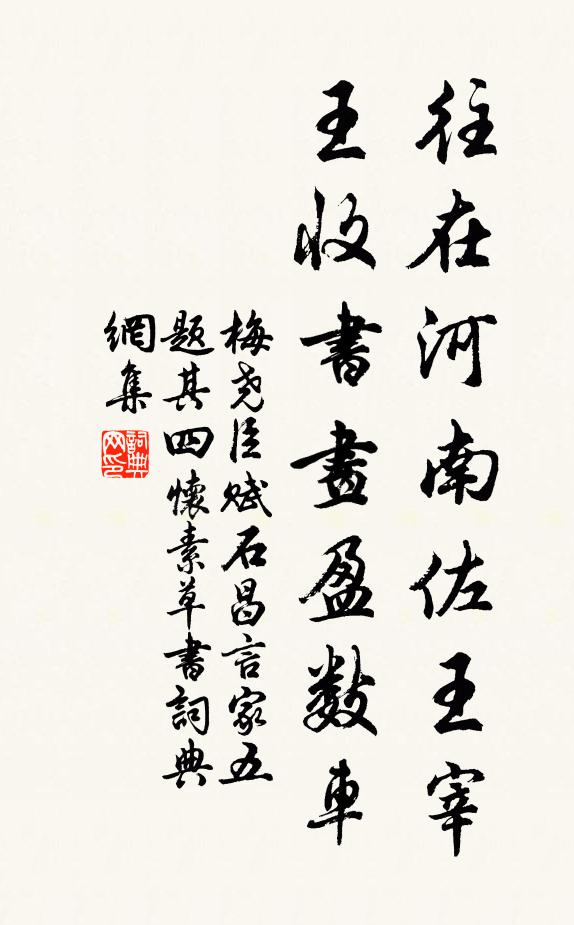 往在河南佐王宰
王收書畫盈數車
梅堯臣賦石昌言家五
題其四懷素草書詞典
網集
詞典网印